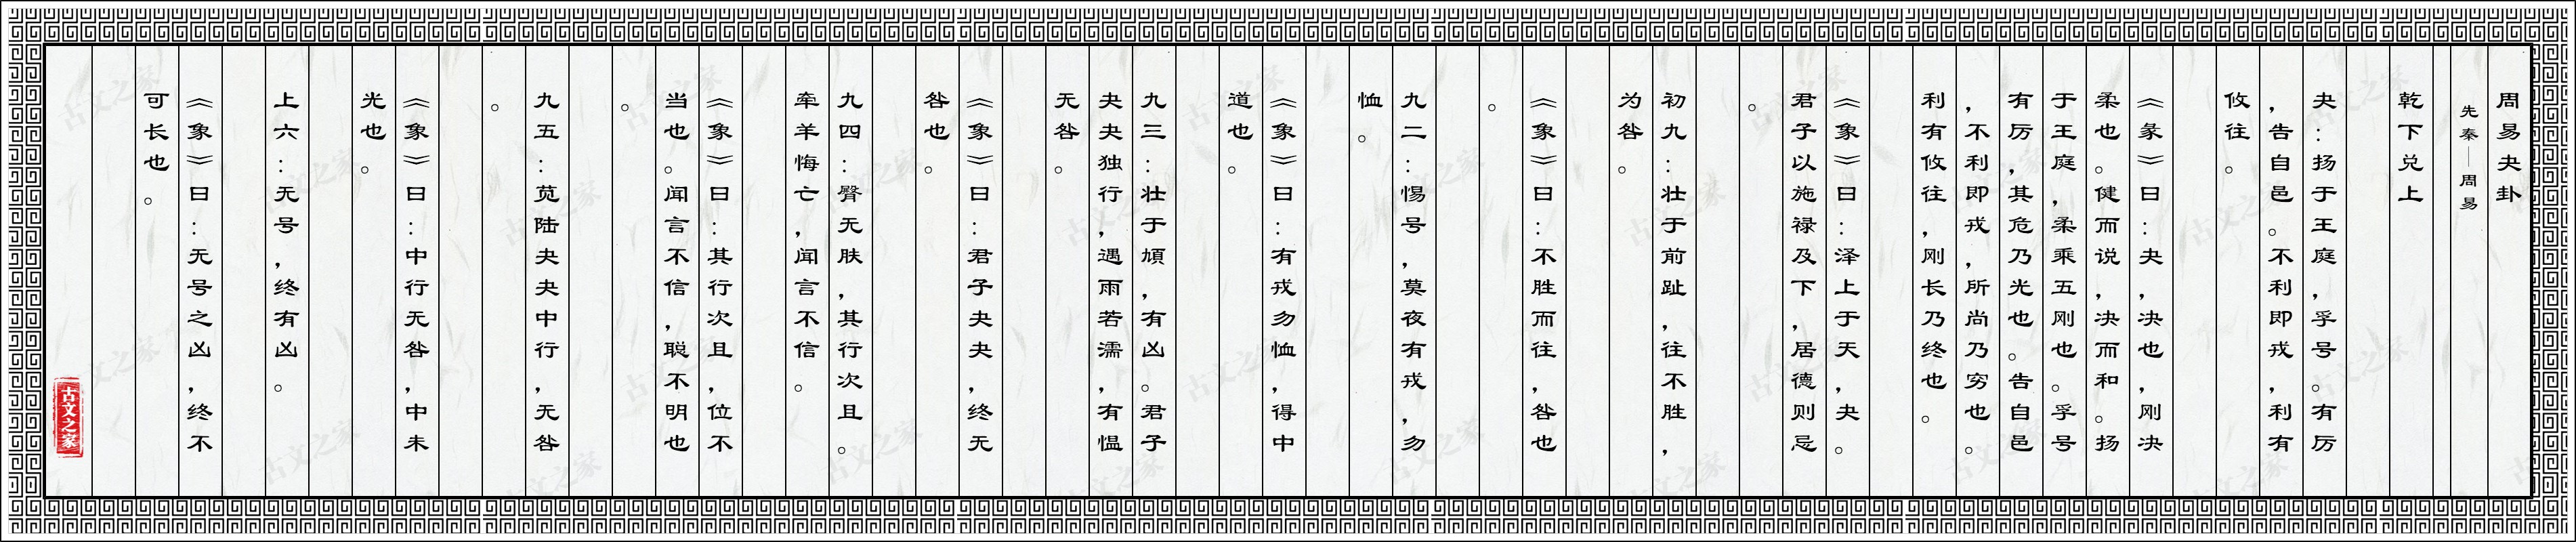 周易夬卦
先秦——周易
乾下兑上
夬：扬于王庭，孚号。有厉
，告自邑。不利即戎，利有
攸往。
《彖》曰：夬，决也，刚决
柔也。健而说，决而和。扬
于王庭，柔乘五刚也。孚号
有厉，其危乃光也。告自邑
，不利即戎，所尚乃穷也。
利有攸往，刚长乃终也。
《象》曰：泽上于天，夬。
君子以施禄及下，居德则忌
。
初九：壮于前趾，往不胜，
为咎。
《象》曰：不胜而往，咎也
。
九二：惕号，莫夜有戎，勿
恤。
《象》曰：有戎勿恤，得中
道也。
九三：壮于頄，有凶。君子
夬夬独行，遇雨若濡，有愠
无咎。
《象》曰：君子夬夬，终无
咎也。
九四：臀无肤，其行次且。
牵羊悔亡，闻言不信。
《象》曰：其行次且，位不
当也。闻言不信，聪不明也
。
九五：苋陆夬夬中行，无咎
。
《象》曰：中行无咎，中未
光也。
上六：无号，终有凶。
《象》曰：无号之凶，终不
可长也。
古文之家